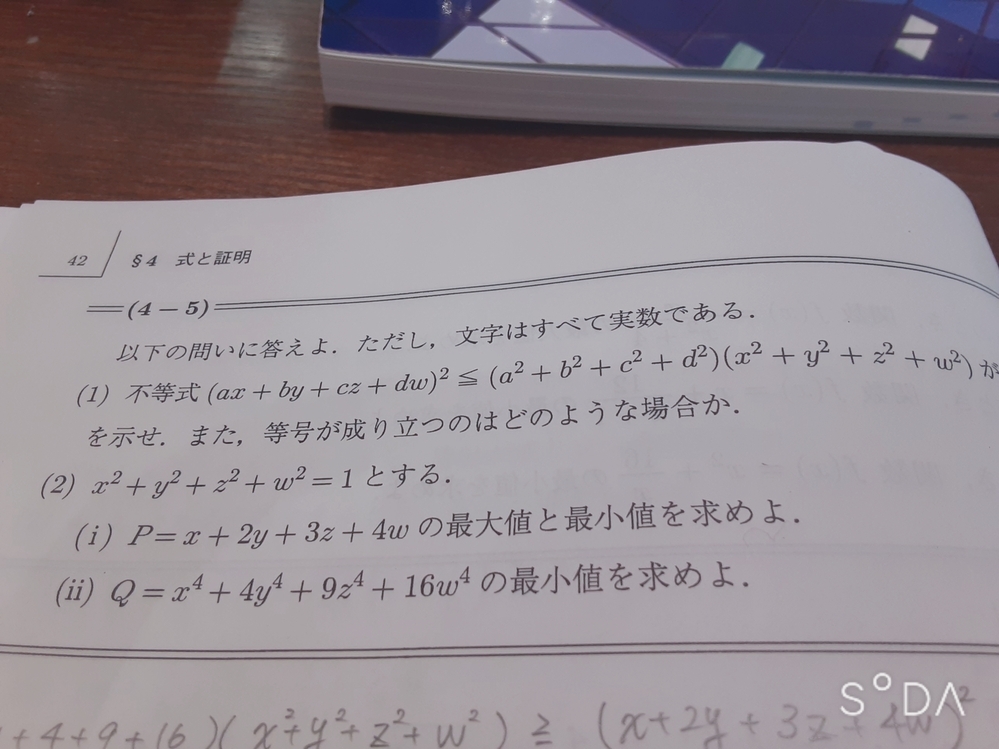 42 §4 式と証明
(4-5)
以下の問いに答えよ．ただし，文字はすべて実数である．
(1) 不等式 (ax + by + cz + dw)² ≦ (a² + b² + c² + d²)(x² + y² + z² + w²) が
を示せ．また，等号が成り立つのはどのような場合か．
(2) x² + y² + z² + w² = 1 とする．
(i) P = x + 2y + 3z + 4w の最大値と最小値を求めよ．
(ii) Q = x⁴ + 4y⁴ + 9z⁴ + 16w⁴ の最小値を求めよ．
+ 4 + 9 + 16)(x² + y² + z² + w²) ≧ (x + 2y + 3z + 4w)²
SODA